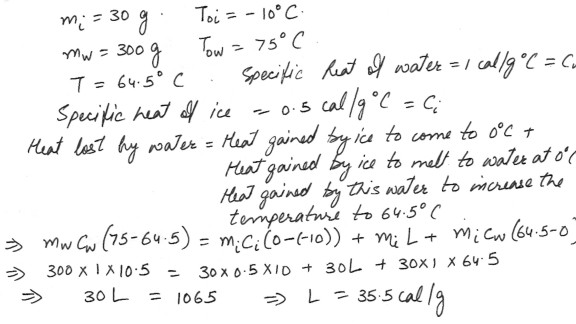 m_i = 30 g. T_oi = -10°C.
m_w = 300 g T_ow = 75°C
T = 64.5°C. Specific heat of water = 1 cal/g°C = C
Specific heat of ice = 0.5 cal/g°C = C_i
Heat lost by water = Heat gained by ice to come to 0°C +
Heat gained by ice to melt to water at 0°C
Heat gained by this water to increase the
temperature to 64.5°C
⇒ m_w C_w (75-64.5) = m_i C_i (0-(-10)) + m_i L + m_i C_w (64.5-0)
⇒ 300 × 1 × 10.5 = 30 × 0.5 × 10 + 30L + 30×1 × 64.5
⇒ 30 L = 1065 ⇒ L = 35.5 cal/g